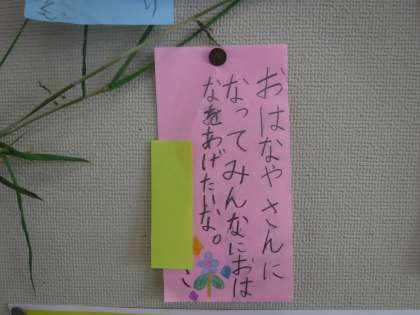 おはなやさんに
なってみんなにおは
なをあげたいな。